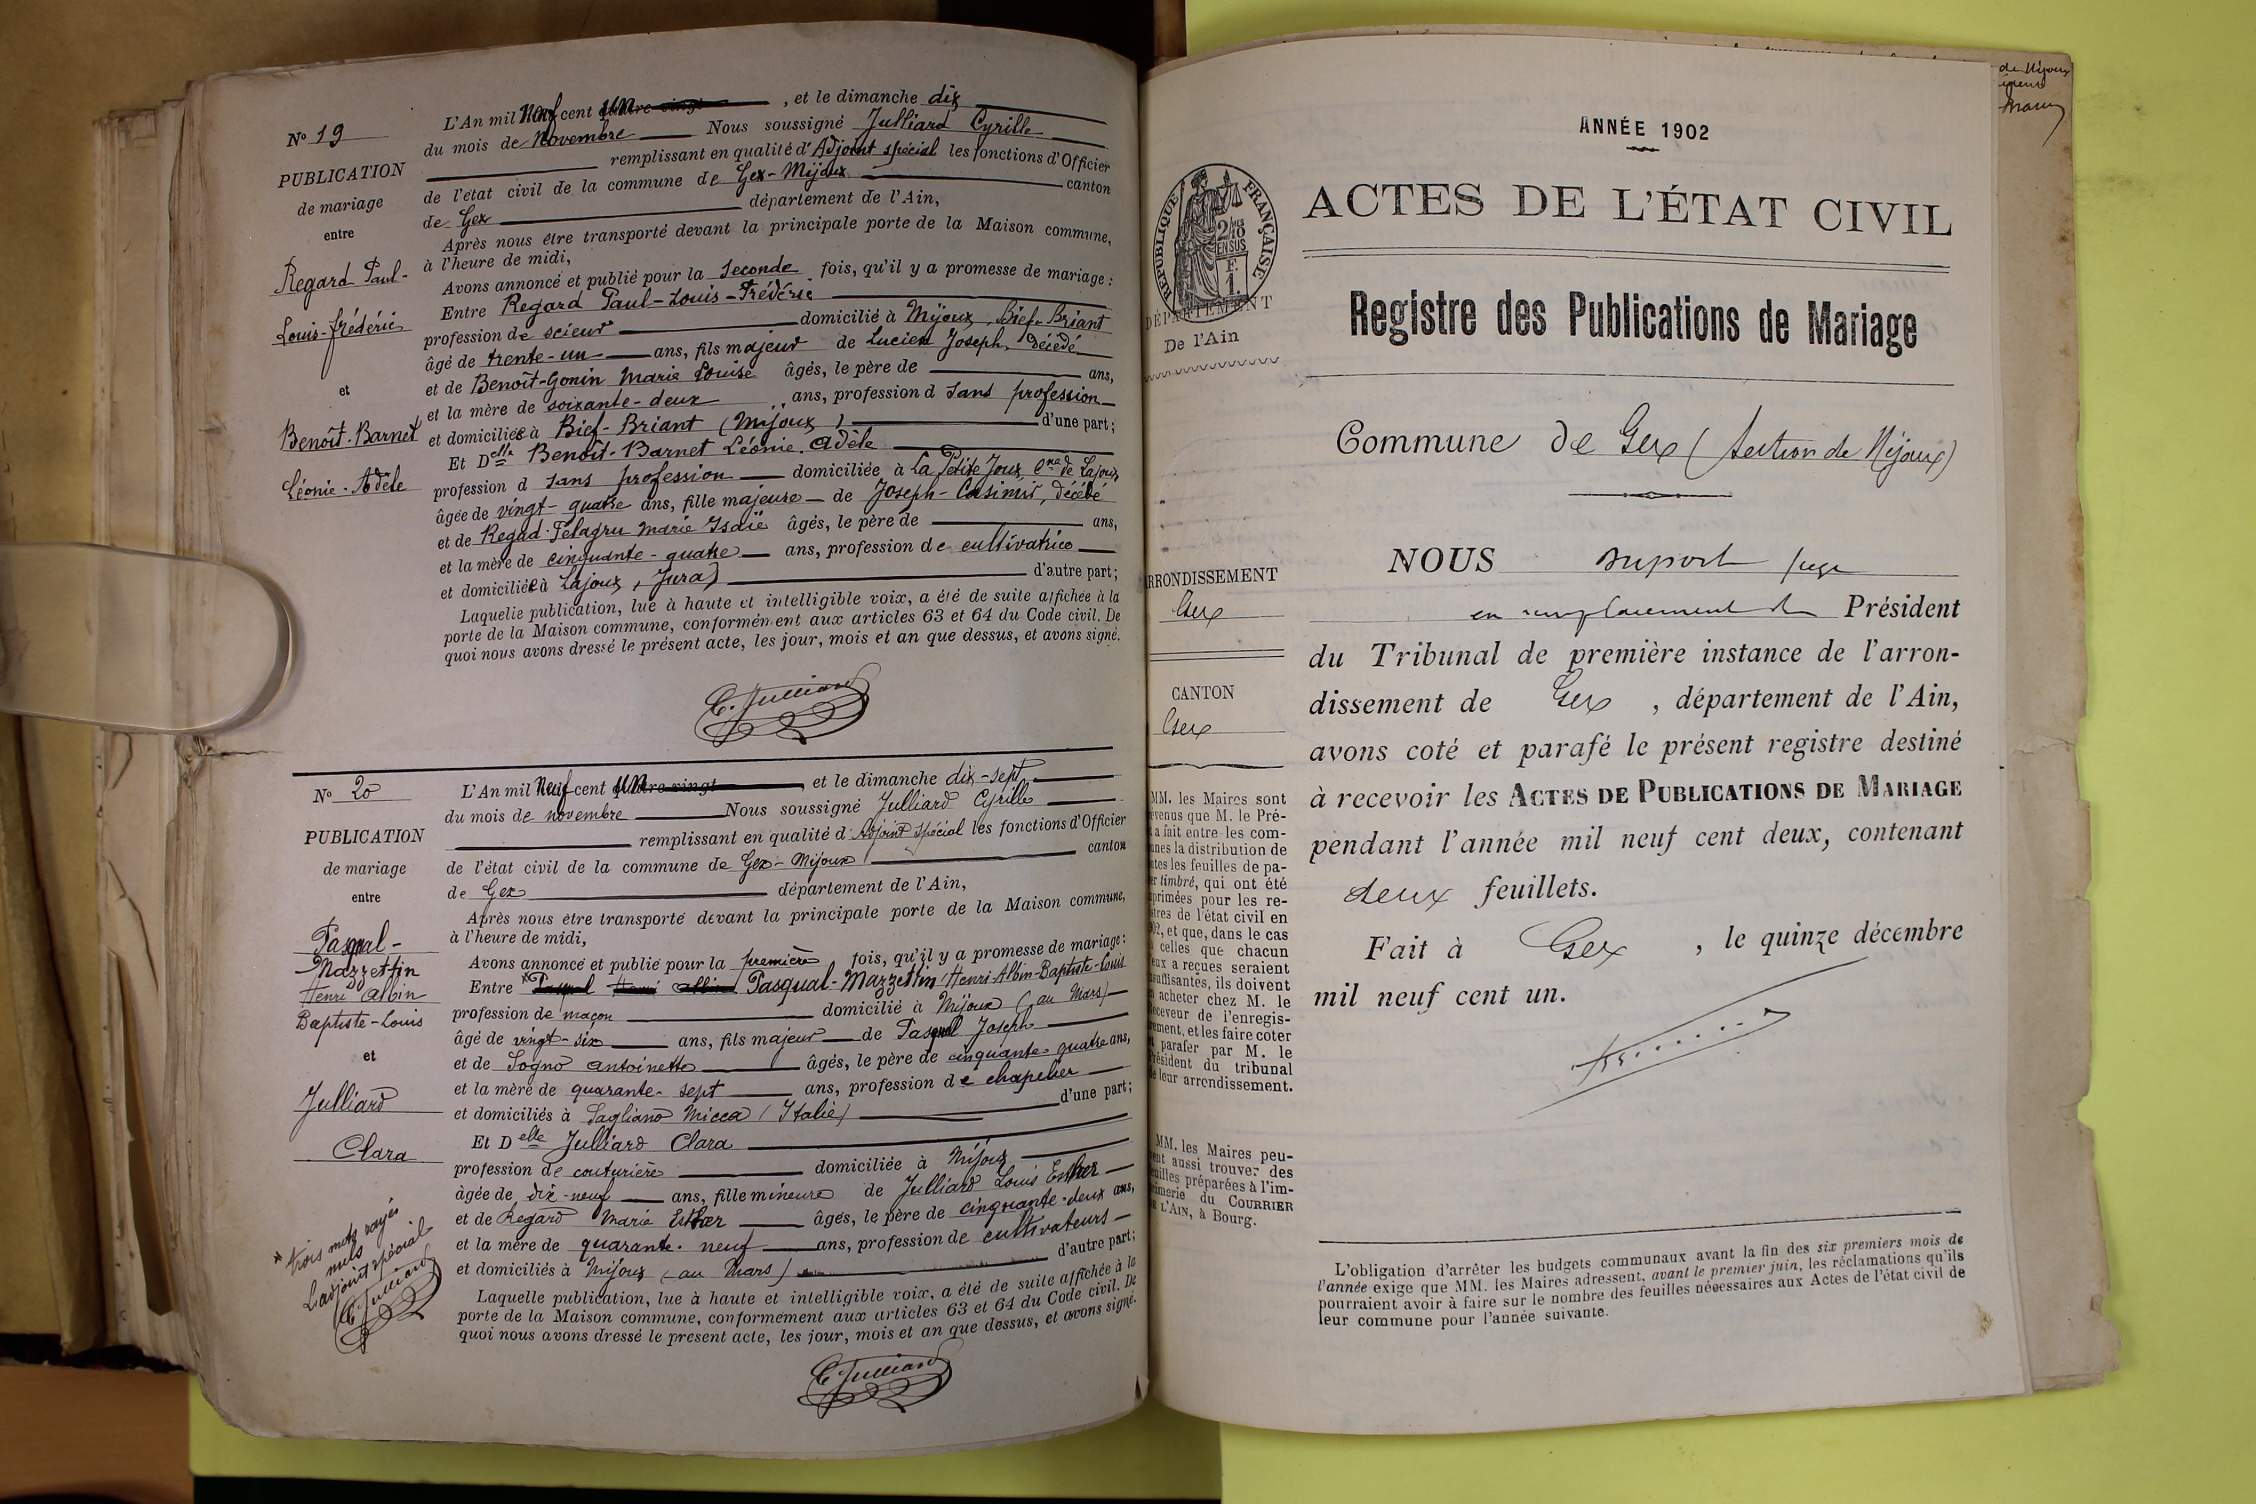 N° 19
PUBLICATION
de mariage
entre
Regard Paul-
Louis-Frédéric
et
Benoît-Barnet
Léonie-Adèle
L'An mil Neuf cent un, et le dimanche dix
du mois de Novembre Nous soussigné Julliard Cyrille
remplissant en qualité d'Adjoint spécial les fonctions d'Officier
de l'état civil de la commune de Gex-Mijoux canton
de Gex département de l'Ain,
Après nous être transporté devant la principale porte de la Maison commune,
à l'heure de midi,
Avons annoncé et publié pour la seconde fois, qu'il y a promesse de mariage :
Entre Regard Paul-Louis-Frédéric
profession de scieur domicilié à Mijoux, Bief-Briant
âgé de trente-un ans, fils majeur de Lucien Joseph, décédé
et de Benoît-Gonin Marie Louise âgés, le père de ans,
et la mère de soixante-deux ans, profession d sans profession
et domiciliée à Bief-Briant (Mijoux) d'une part ;
Et Delle Benoît-Barnet Léonie-Adèle
profession d sans profession domiciliée à La Petite Joux, Cne de Lajoux
âgée de vingt-quatre ans, fille majeure de Joseph-Casimir, décédé
et de Regad-Pelagru Marie Isaïe âgés, le père de ans,
et la mère de cinquante-quatre ans, profession de cultivatrice
et domiciliée à Lajoux, Jura) d'autre part ;
Laquelle publication, lue à haute et intelligible voix, a été de suite affichée à la
porte de la Maison commune, conformément aux articles 63 et 64 du Code civil. De
quoi nous avons dressé le présent acte, les jour, mois et an que dessus, et avons signé.
C. Julliard
N° 20
PUBLICATION
de mariage
entre
Pasqual-
Mazzettin
Henri Albin
Baptiste-Louis
et
Julliard
Clara
* trois mots rayés
nuls
L'adjoint spécial
C. Julliard
L'An mil Neuf cent un, et le dimanche dix-sept
du mois de novembre Nous soussigné Julliard Cyrille
remplissant en qualité d'Adjoint spécial les fonctions d'Officier
de l'état civil de la commune de Gex-Mijoux canton
de Gex département de l'Ain,
Après nous être transporté devant la principale porte de la Maison commune,
à l'heure de midi,
Avons annoncé et publié pour la première fois, qu'il y a promesse de mariage :
Entre * Pasqual Henri Albin Pasqual-Mazzettin Henri-Albin-Baptiste-Louis
profession de maçon domicilié à Mijoux (au Mars)
âgé de vingt-six ans, fils majeur de Pasqual Joseph
et de Sogno Antoinette âgés, le père de cinquante-quatre ans,
et la mère de quarante-sept ans, profession de chapelier
et domiciliés à Sagliano Micca (Italie) d'une part ;
Et Delle Julliard Clara
profession de couturière domiciliée à Mijoux
âgée de dix-neuf ans, fille mineure de Julliard Louis Esther
et de Regard Marie Esther âgés, le père de cinquante-deux ans,
et la mère de quarante-neuf ans, profession de cultivateurs
et domiciliés à Mijoux (au Mars) d'autre part ;
Laquelle publication, lue à haute et intelligible voix, a été de suite affichée à la
porte de la Maison commune, conformement aux articles 63 et 64 du Code civil. De
quoi nous avons dressé le présent acte, les jour, mois et an que dessus, et avons signé.
C. Julliard
de Mijoux
ANNÉE 1902
ACTES DE L'ÉTAT CIVIL
Registre des Publications de Mariage
Commune de Gex (section de Mijoux)
RÉPUBLIQUE FRANÇAISE
2/10 EN SUS
F. 1.
DÉPARTEMENT
De l'Ain
ARRONDISSEMENT
Gex
CANTON
Gex
MM. les Maires sont
evenus que M. le Pré-
a fait entre les com-
unes la distribution de
tes les feuilles de pa-
er timbré, qui ont été
primées pour les re-
stres de l'état civil en
02, et que, dans le cas
celles que chacun
eux a reçues seraient
suffisantes, ils doivent
acheter chez M. le
eceveur de l'enregis-
rement, et les faire coter
parafer par M. le
résident du tribunal
e leur arrondissement.
MM. les Maires peu-
ent aussi trouver des
euilles préparées à l'im-
rimerie du COURRIER
L'AIN, à Bourg.
NOUS Duport juge
en remplacement du Président
du Tribunal de première instance de l'arron-
dissement de Gex, département de l'Ain,
avons coté et parafé le présent registre destiné
à recevoir les ACTES DE PUBLICATIONS DE MARIAGE
pendant l'année mil neuf cent deux, contenant
deux feuillets.
Fait à Gex, le quinze décembre
mil neuf cent un.
L'obligation d'arrêter les budgets communaux avant la fin des six premiers mois de
l'année exige que MM. les Maires adressent, avant le premier juin, les réclamations qu'ils
pourraient avoir à faire sur le nombre des feuilles nécessaires aux Actes de l'état civil de
leur commune pour l'année suivante.